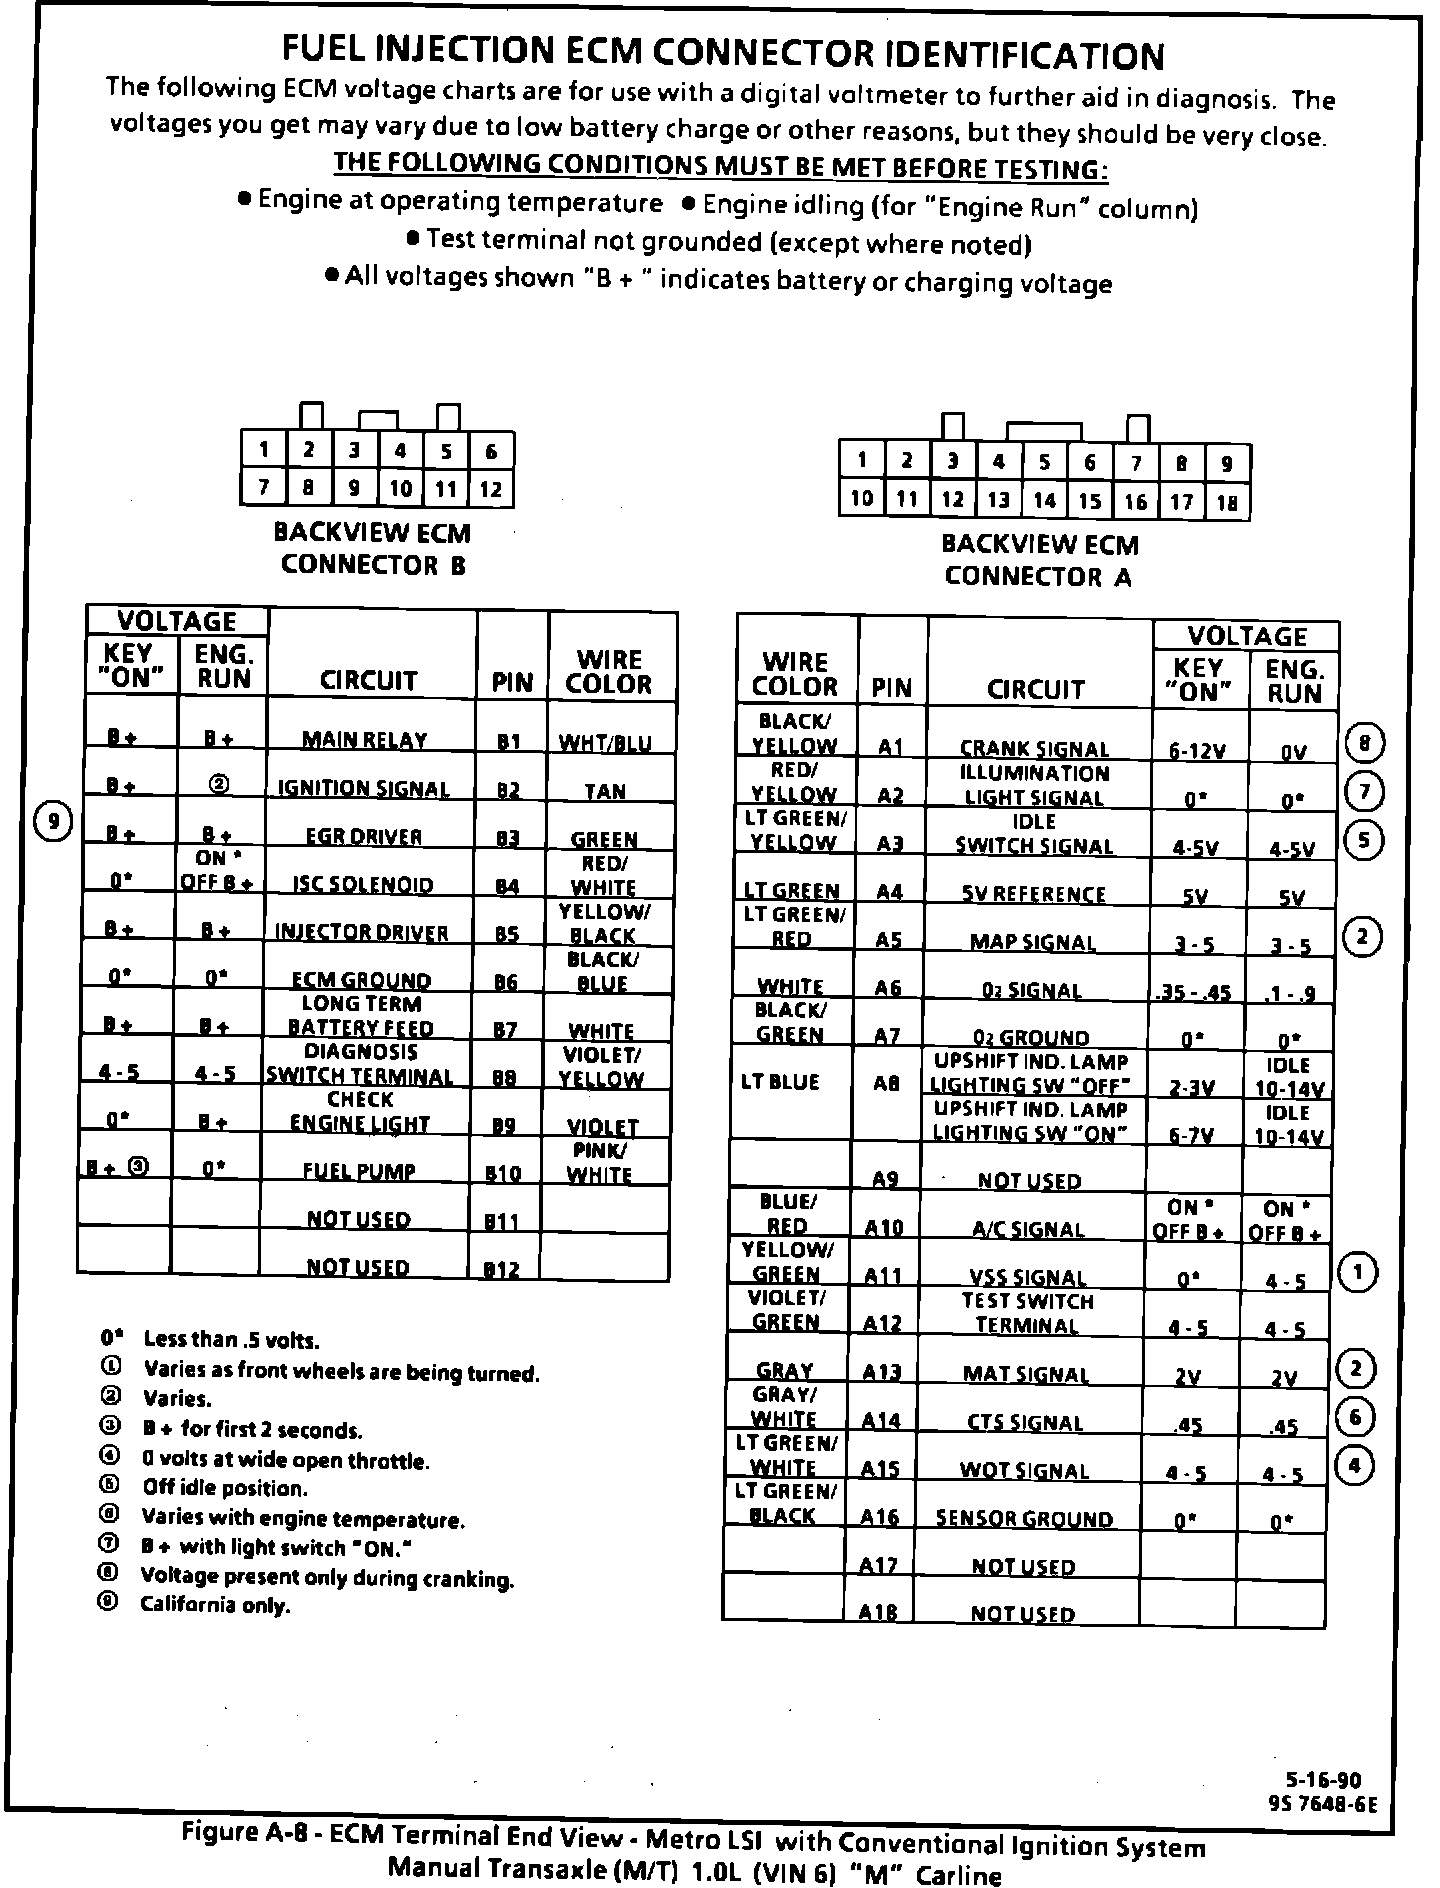 FUEL INJECTION ECM CONNECTOR IDENTIFICATION
The following ECM voltage charts are for use with a digital voltmeter to further aid in diagnosis. The
voltages you get may vary due to low battery charge or other reasons, but they should be very close.
THE FOLLOWING CONDITIONS MUST BE MET BEFORE TESTING:
● Engine at operating temperature ● Engine idling (for "Engine Run" column)
● Test terminal not grounded (except where noted)
● All voltages shown "B + " indicates battery or charging voltage
1 2 3 4 5 6
7 8 9 10 11 12
BACKVIEW ECM
CONNECTOR B
1 2 3 4 5 6 7 8 9
10 11 12 13 14 15 16 17 18
BACKVIEW ECM
CONNECTOR A
VOLTAGE
KEY "ON" ENG. RUN CIRCUIT PIN WIRE COLOR
B+ B+ MAIN RELAY B1 WHT/BLU
B+ ② IGNITION SIGNAL B2 TAN
⑨ B+ B+ EGR DRIVER B3 GREEN
0* ON * OFF B+ ISC SOLENOID B4 RED/ WHITE
B+ B+ INJECTOR DRIVER B5 YELLOW/ BLACK
0* 0* ECM GROUND B6 BLACK/ BLUE
B+ B+ LONG TERM BATTERY FEED B7 WHITE
4-5 4-5 DIAGNOSIS SWITCH TERMINAL B8 VIOLET/ YELLOW
0* B+ CHECK ENGINE LIGHT B9 VIOLET
B+ ③ 0* FUEL PUMP B10 PINK/ WHITE
NOT USED B11
NOT USED B12
0* Less than .5 volts.
① Varies as front wheels are being turned.
② Varies.
③ B+ for first 2 seconds.
④ 0 volts at wide open throttle.
⑤ Off idle position.
⑥ Varies with engine temperature.
⑦ B+ with light switch "ON."
⑧ Voltage present only during cranking.
⑨ California only.
VOLTAGE
WIRE COLOR PIN CIRCUIT KEY "ON" ENG. RUN
BLACK/ YELLOW A1 CRANK SIGNAL 6-12V 0V ⑧
RED/ YELLOW A2 ILLUMINATION LIGHT SIGNAL 0* 0* ⑦
LT GREEN/ YELLOW A3 IDLE SWITCH SIGNAL 4-5V 4-5V ⑤
LT GREEN A4 5V REFERENCE 5V 5V
LT GREEN/ RED A5 MAP SIGNAL 3-5 3-5 ②
WHITE A6 O2 SIGNAL .35-.45 .1-.9
BLACK/ GREEN A7 O2 GROUND 0* 0*
LT BLUE A8 UPSHIFT IND. LAMP LIGHTING SW "OFF" 2-3V IDLE 10-14V
UPSHIFT IND. LAMP LIGHTING SW "ON" 6-7V IDLE 10-14V
A9 NOT USED
BLUE/ RED A10 A/C SIGNAL ON * OFF B+ ON * OFF B+
YELLOW/ GREEN A11 VSS SIGNAL 0* 4-5 ①
VIOLET/ GREEN A12 TEST SWITCH TERMINAL 4-5 4-5
GRAY A13 MAT SIGNAL 2V 2V ②
GRAY/ WHITE A14 CTS SIGNAL .45 .45 ⑥
LT GREEN/ WHITE A15 WOT SIGNAL 4-5 4-5 ④
LT GREEN/ BLACK A16 SENSOR GROUND 0* 0*
A17 NOT USED
A18 NOT USED
5-16-90
9S 7648-6E
Figure A-8 - ECM Terminal End View - Metro LSI with Conventional Ignition System
Manual Transaxle (M/T) 1.0L (VIN 6) "M" Carline